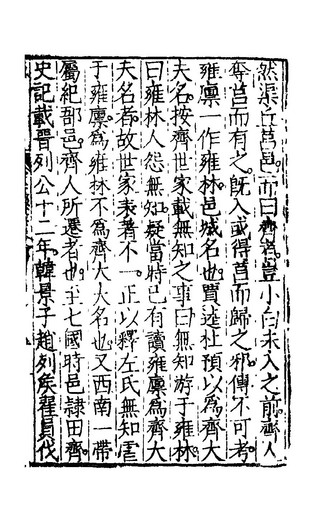 然渠丘莒邑而曰齊者豈小白未入之前齊人
奪莒而有之既入或得莒而歸之邪傳不可考
雍廩一作雍林邑城名也賈逵杜預以爲齊大
夫名按齊世家載無知之事曰無知游于雍林
曰雍林人怨無知疑當時已有讀雍廩爲齊大
夫名者故世家表著不一正以釋左氏無知虐
于雍廩爲雍林不爲齊大夫名也又西南一帶
屬紀郚邑齊人所遷者也至七國時邑隷田齊
史記載晉列公十二年韓景子趙列矦翟員伐